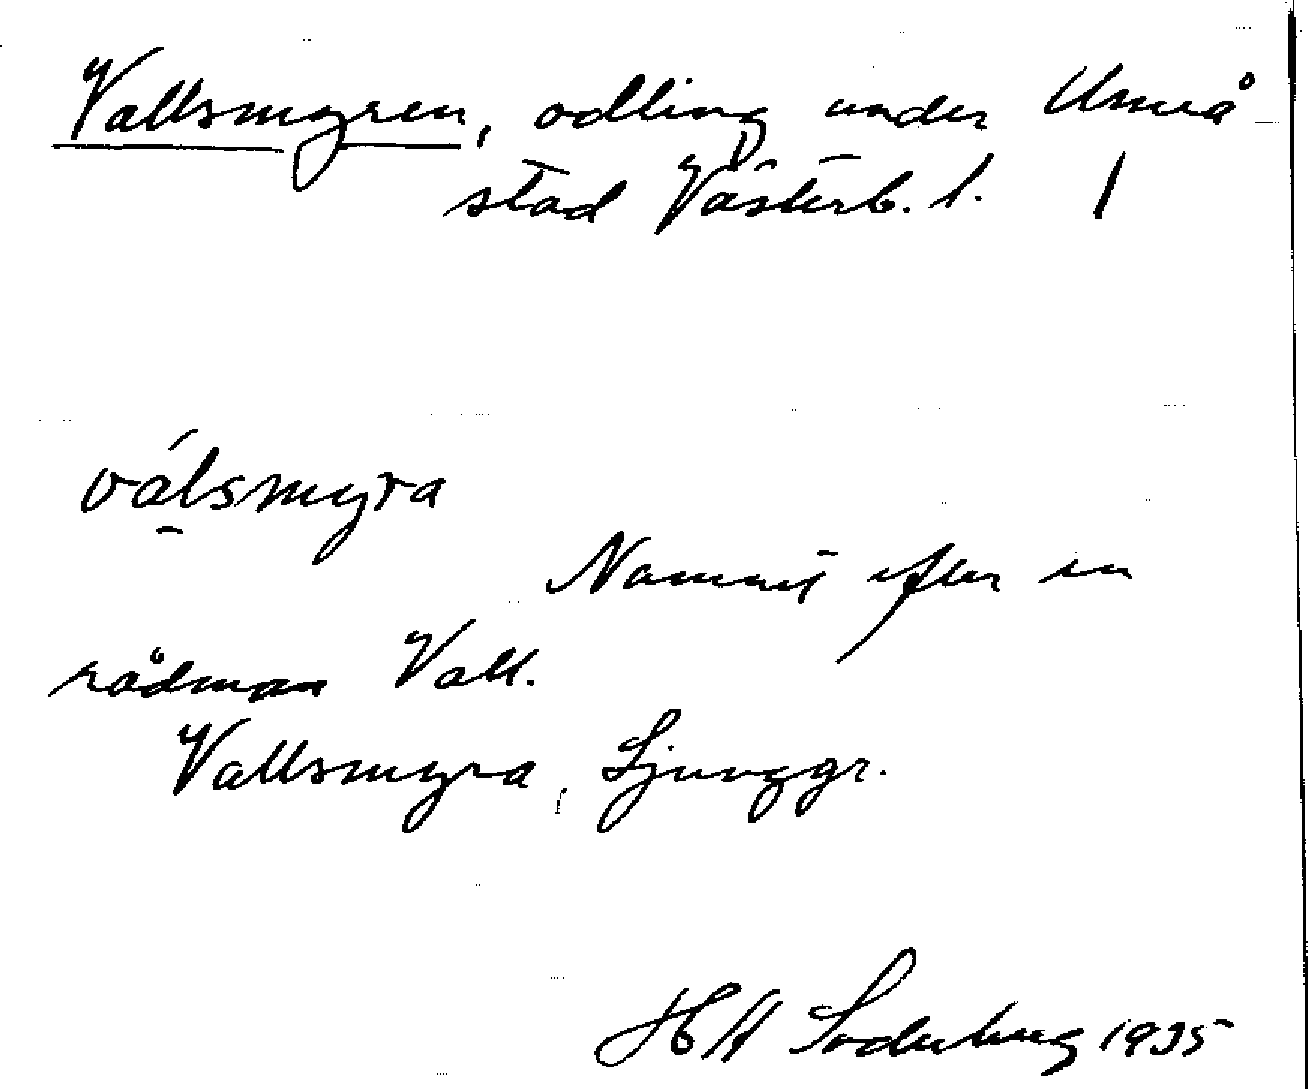 Vallsmyren, odling under Umeå
stad Västerb. l. 1
válsmyra
Namnet efter en
rådman Vall.
Vallsmyra, Ljunggr.
H Söderberg 1935